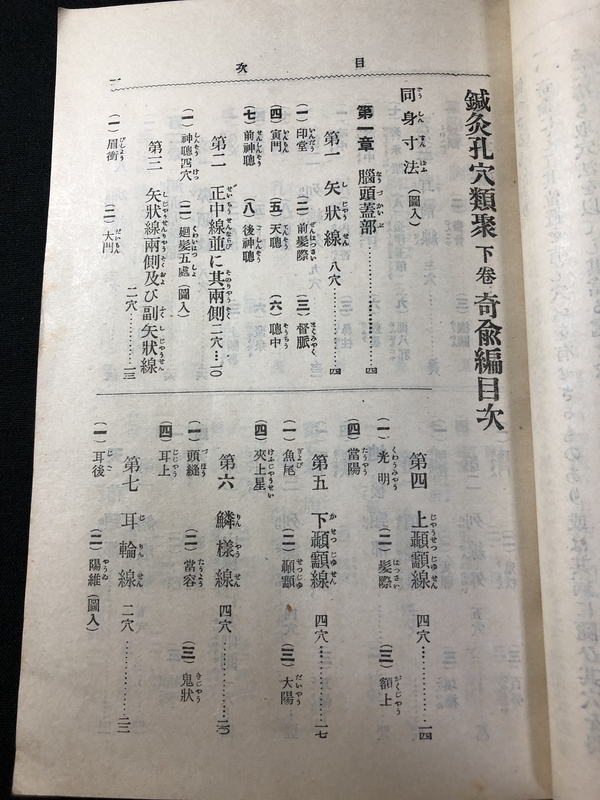 目次
一
鍼灸孔穴類聚 下卷 奇兪編目次
同身寸法（圖入）
第一章 腦頭蓋部…………四
第一 矢狀線 八穴…………四
（一）印堂 （二）前髮際 （三）督脈
（四）寅門 （五）天聰 （六）聰中
（七）前神聰 （八）後神聰
第二 正中線並に其兩側 二穴…一〇
（一）神聰四穴 （二）廻髮五處（圖入）
第三 矢狀線兩側及び副矢狀線
二穴…………一三
（一）眉衝 （二）大門
第四 上顳顬線 四穴…………一四
（一）光明 （二）髮際 （三）額上
（四）當陽
第五 下顳顬線 四穴…………一七
（一）魚尾 （二）顳顬 （三）大陽
（四）夾上星
第六 鱗樣線 四穴…………二〇
（一）頭縫 （二）當容 （三）鬼狀
（四）耳上
第七 耳輪線 二穴…………二二
（一）耳後 （二）陽維（圖入）